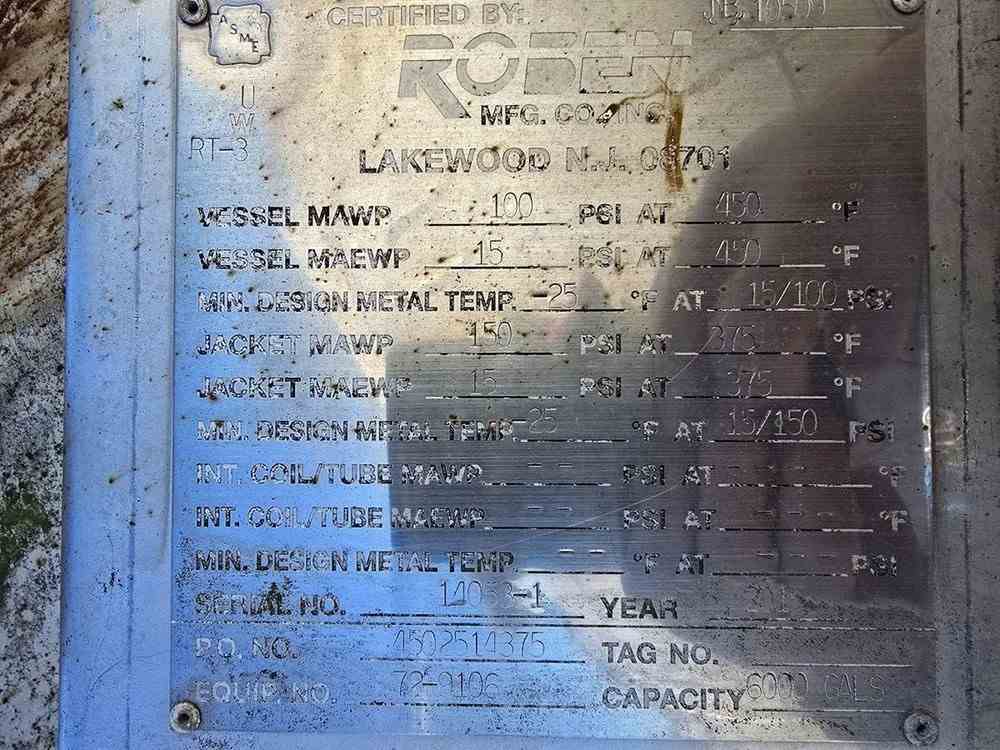 CERTIFIED BY: JB 10599
ASME
ROBEN
U
W
MFG. CO., INC.
RT-3
LAKEWOOD N.J. 08701
VESSEL MAWP 100 PSI AT 450 °F
VESSEL MAEWP 15 PSI AT 450 °F
MIN. DESIGN METAL TEMP. -25 °F AT 15/100 PSI
JACKET MAWP 150 PSI AT 375 °F
JACKET MAEWP 15 PSI AT 375 °F
MIN. DESIGN METAL TEMP -25 °F AT 15/150 PSI
INT. COIL/TUBE MAWP -- PSI AT --- °F
INT. COIL/TUBE MAEWP -- PSI AT --- °F
MIN. DESIGN METAL TEMP. -- °F AT --- PSI
SERIAL NO. YEAR
P.O. NO. 4502514375 TAG NO.
EQUIP. NO. 72-0106 CAPACITY 6000 GALS